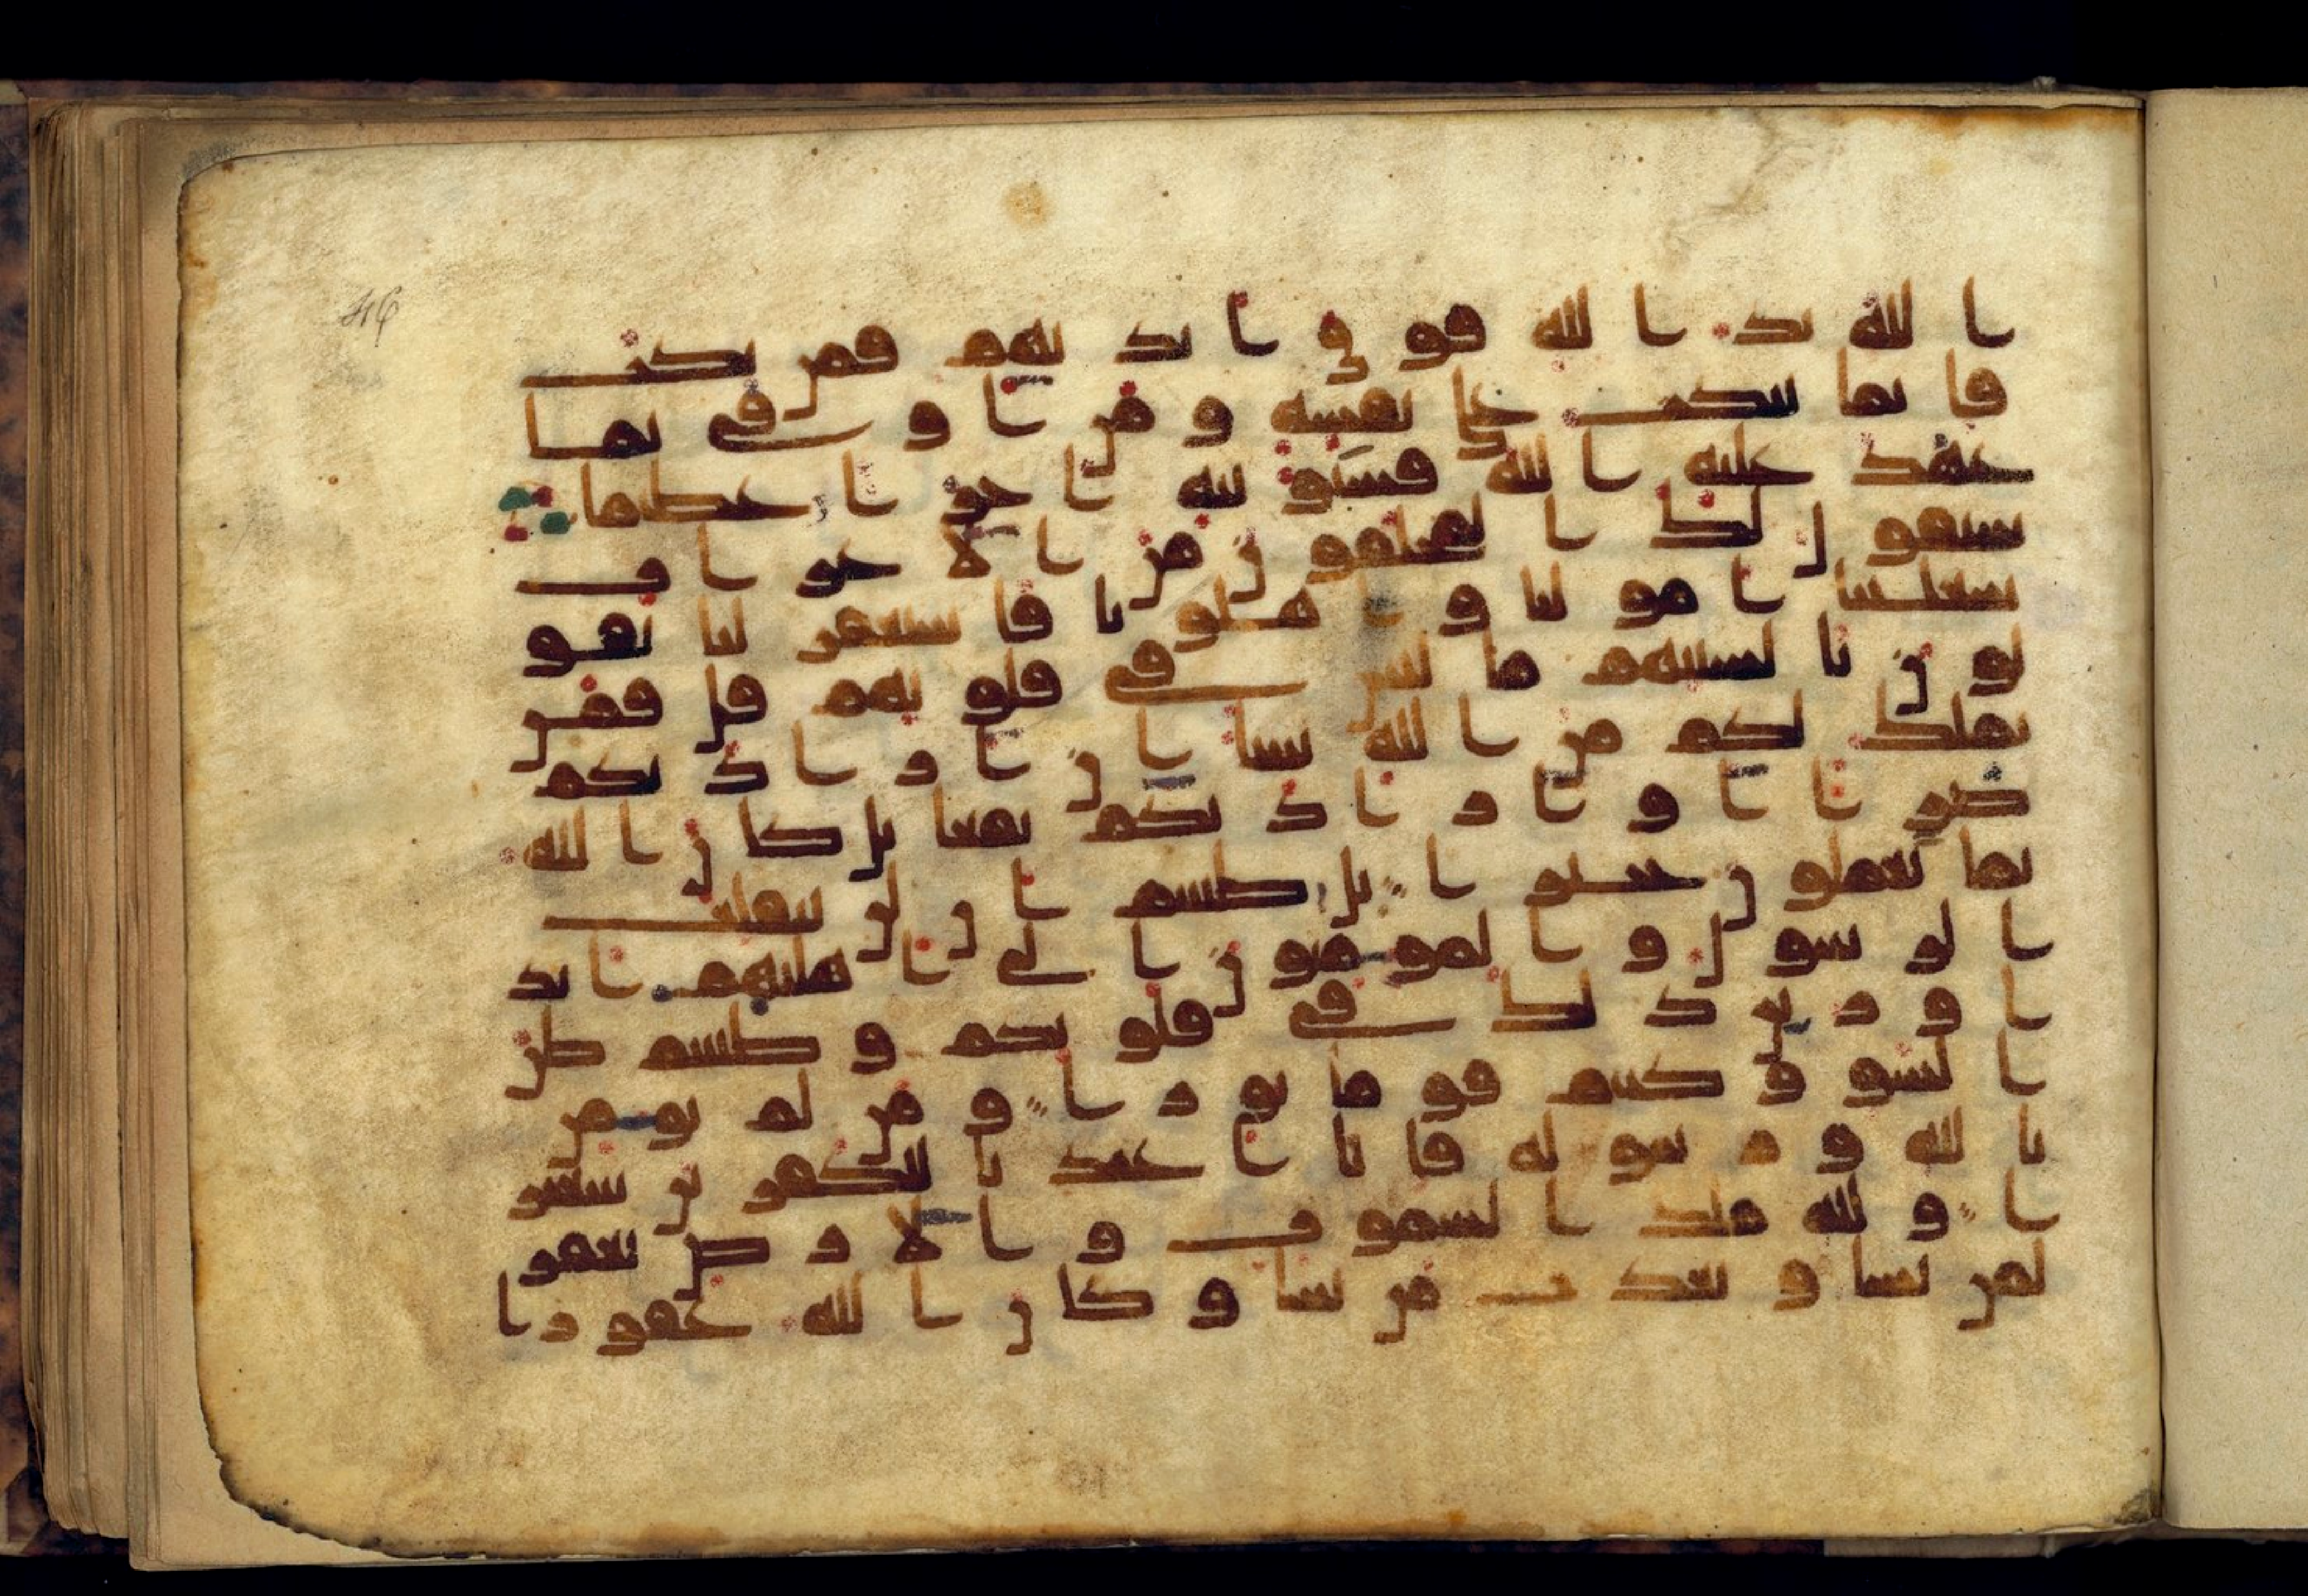 46
الله يد الله فوق ايديهم فمن نكث
فانما ينكث على نفسه ومن اوفى بما
عهد عليه الله فسيوتيه اجرا عظيما
سيقول لك المخلفون من الاعراب
شغلتنا امولنا واهلونا فاستغفر لنا يقو
لون بالسنتهم ما ليس في قلوبهم قل فمن
يملك لكم من الله شيا ان اراد بكم
ضرا او اراد بكم نفعا بل كان الله
بما تعملون خبيرا بل ظننتم ان لن ينقلب
الرسول والمومنون الى اهليهم ابد
ا وزين ذلك في قلوبكم وظننتم ظن
السو وكنتم قوما بورا ومن لم يومن
بالله ورسوله فانا اعتدنا للكفرين سعير
ا ولله ملك السموت والارض يغفر
لمن يشا ويعذب من يشا وكان الله غفورا